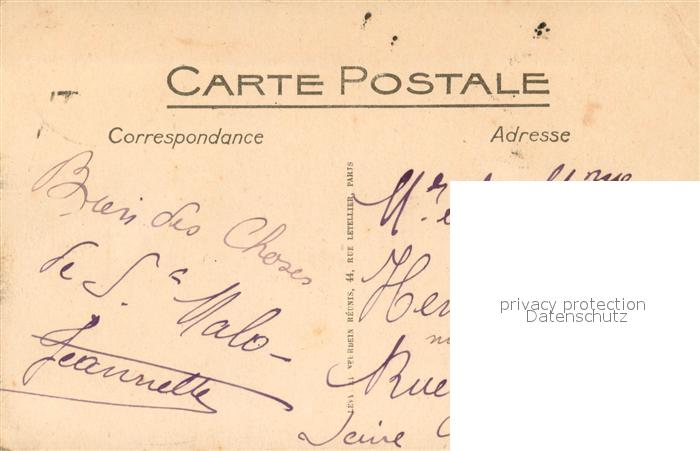 CARTE POSTALE
Correspondance
Adresse
Bien des Choses
de St Malo
Jeannette
LÉVY & NEURDEIN RÉUNIS, 44, RUE LETELLIER, PARIS
Mr
Rue
privacy protection
Datenschutz